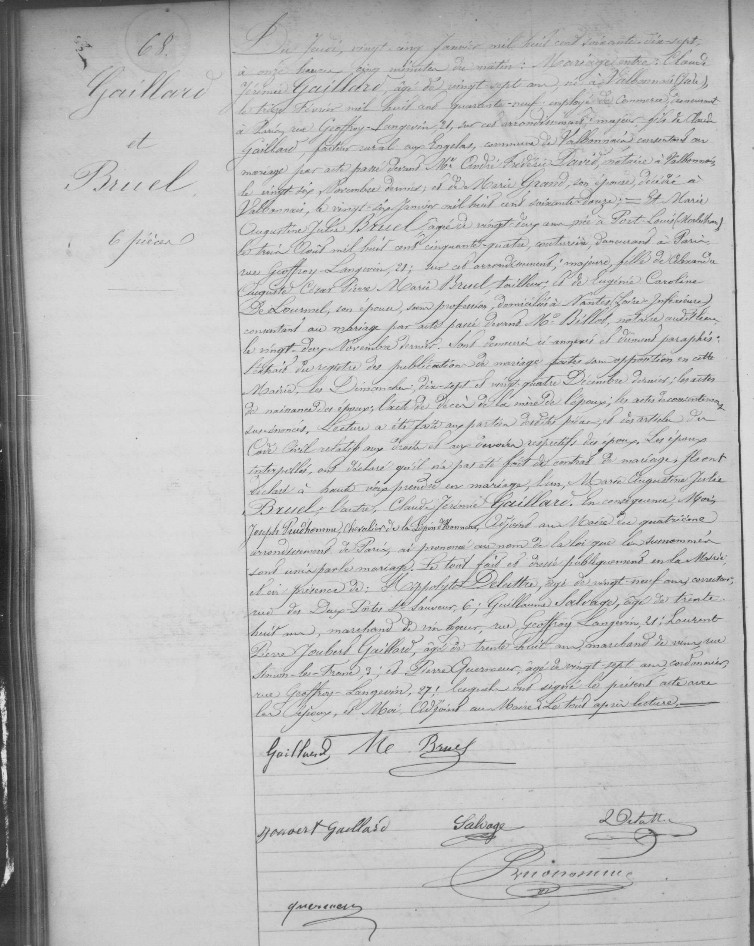 68.
Gaillard
et
Bruel
6 pièces
Du Jeudi, vingt cinq Janvier mil huit cent soixante-dix-sept,
à onze heures cinq minutes du matin: Mariage entre: Claude
Jérémie Gaillard, âgé de vingt sept ans, né à Valbonnais (Isère),
le trois Février mil huit cent quarante-neuf, employé de commerce, demeurant
à Paris, rue Geoffroy-Langevin, 21, sur cet arrondissement; majeur, fils de Claude
Gaillard, facteur rural aux Engelas, commune de Valbonnais consentant au
mariage par acte passé devant Me André Frédéric David, notaire à Valbonnais,
le vingt-six Novembre dernier; et de Marie Grand, son épouse, décédée à
Valbonnais, le vingt-six Janvier mil huit cent soixante-douze; — Et Marie
Augustine Julie Bruel, âgée de vingt-deux ans, née à Port-Louis (Morbihan),
le trois Août mil huit cent cinquante-quatre, couturière, demeurant à Paris,
rue Geoffroy-Langevin, 21; sur cet arrondissement; majeure, fille de Alexandre
Auguste Oscar Pierre Marie Bruel tailleur, et de Eugénie Caroline
De Lourmel, son épouse, sans profession, domiciliés à Nantes (Loire-Inférieure)
consentant au mariage par acte passé devant Me Billot, notaire audit lieu,
le vingt-deux Novembre dernier. Sont demeurés ci annexés et dûment paraphés:
l'extrait du registre des publications de mariage faites sans opposition en cette
Mairie, les Dimanches, dix-sept et vingt-quatre Décembre dernier; les actes
de naissance des époux; l'acte de décès de la mère de l'époux; les actes de consentements
susénoncés. Lecture a été faite aux parties desdites pièces, et des articles du
Code Civil relatifs aux droits et aux devoirs respectifs des époux. Les époux
interpellés, ont déclaré qu'il n'a pas été fait de contrat de mariage. Ils ont
déclaré à haute voix prendre en mariage, l'un, Marie Augustine Julie
Bruel, l'autre, Claude Jérémie Gaillard. En conséquence, Moi,
Joseph Prudhomme, Chevalier de la Légion d'Honneur, Adjoint au Maire du quatrième
arrondissement de Paris, ai prononcé au nom de la loi que les susnommés
sont unis par le mariage. Le tout fait et dressé publiquement en la Mairie,
et en présence de: Hippolyte Delatte, âgé de vingt-neuf ans, correcteur,
rue des Deux Portes St Sauveur, 6; Guillaume Salvage, âgé de trente
huit ans, marchand de vin logeur, rue Geoffroy Langevin, 21; Laurent
Pierre Joubert Gaillard, âgé de trente huit ans, marchand de vins, rue
Simon-le-Franc 3; et Pierre Querneur, âgé de vingt sept ans cordonnier,
rue Geoffroy-Langevin, 27; lesquels ont signé le présent acte avec
les Epoux, et Moi Adjoint au Maire. Le tout après lecture.
Gaillard M Bruel
Jouvert Gaillard Salvage Delatte
Prudhomme
querneur